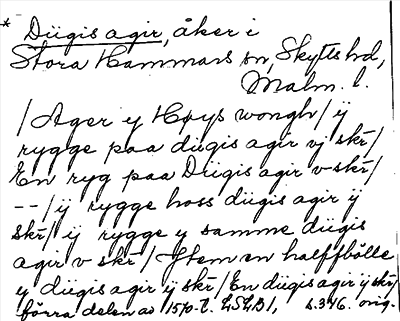 * Dügis agir, åker i
Stora Hammars sn, Skytts hd,
Malm. l.
/Ager y Høys wongh/ ÿ
rygge paa dügis agir vj skr̄/
En ryg paa Dügis agir v skr̄/
--/ij rygge hoss dügis agir ÿ
skr̄/ ij rygge y samme dügis
agir v skr̄/ Jtem en halffbölle
y dügis agir ÿ skr̄/ En dügis agir ÿ skr̄/
förra delen av 1570-t. LSLB1, s. 346. orig.